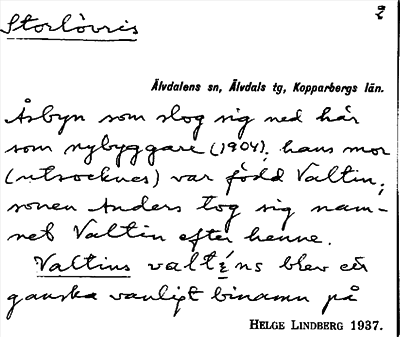 Storlövris
2
Älvdalens sn, Älvdals tg, Kopparbergs län.
Åsbyn som slog sig ned här
som nybyggare (1904), hans mor
(utsocknes) var född Valtin;
sonen Anders tog sig nam-
net Valtin efter henne.
Valtins valténs blev ett
ganska vanligt binamn på
HELGE LINDBERG 1937.